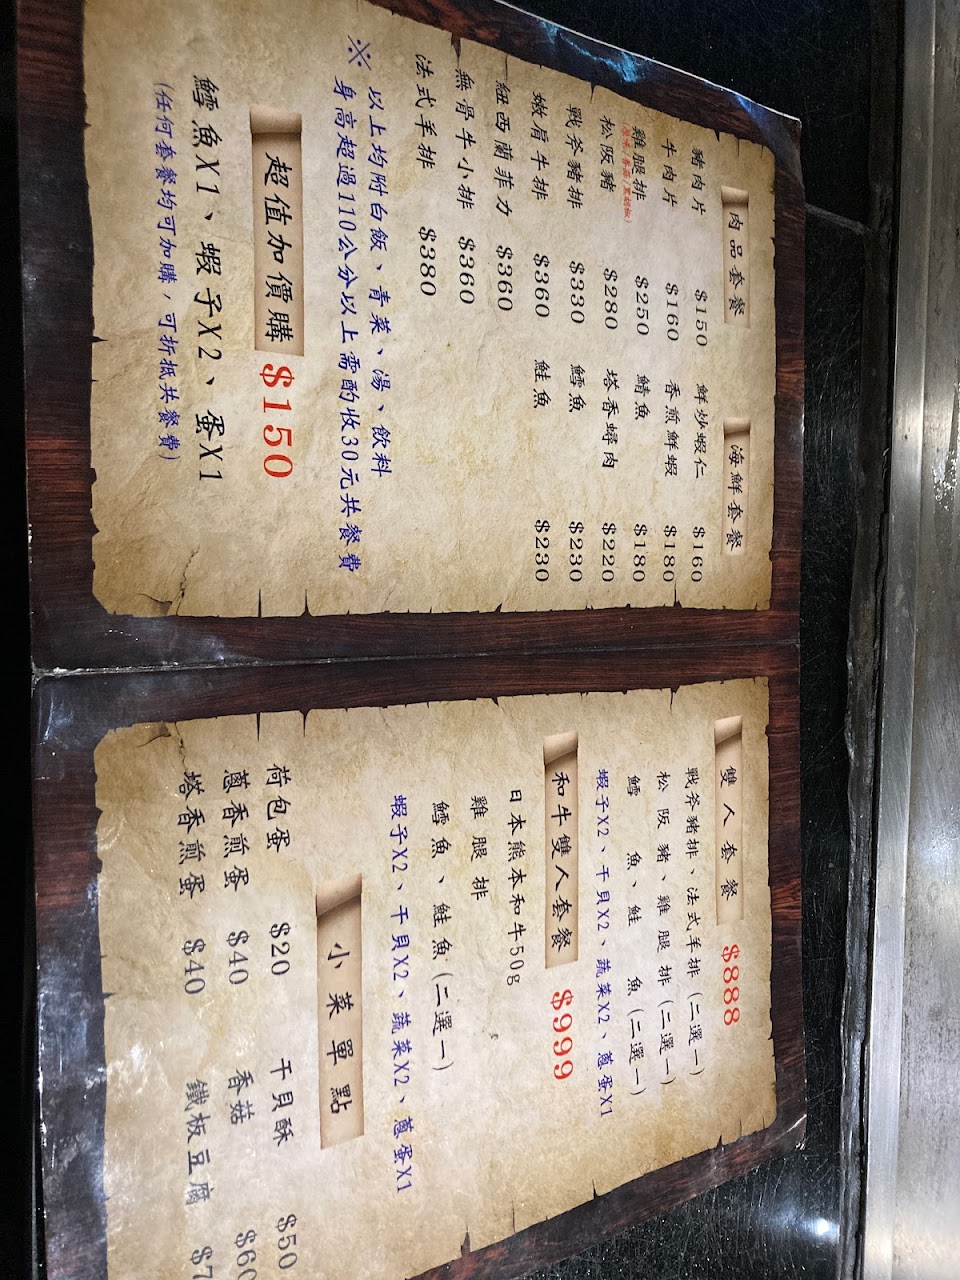 肉品套餐
豬肉片 $150
牛肉片 $160
雞腿排 $250
松阪豬 $280
戰斧豬排 $330
嫩肩牛排 $360
紐西蘭菲力 $360
無骨牛小排 $360
法式羊排 $380
海鮮套餐
鮮炒蝦仁 $160
香煎鮮蝦 $180
鯖魚 $180
塔香蟳肉 $220
鱈魚 $230
鮭魚 $230
※ 以上均附白飯、青菜、湯、飲料
身高超過110公分以上需酌收30元共餐費
超值加價購 $150
鱈魚X1、蝦子X2、蛋X1
(任何套餐均可加購,可折抵共餐費)
雙人套餐 $888
戰斧豬排、法式羊排(二選一)
松阪豬、雞腿排(二選一)
鱈魚、鮭魚(二選一)
蝦子X2、干貝X2、蔬菜X2、蔥蛋X1
和牛雙人套餐 $999
日本熊本和牛50g
雞腿排
鱈魚、鮭魚(二選一)
蝦子X2、干貝X2、蔬菜X2、蔥蛋X1
小菜單點
荷包蛋 $20 干貝酥 $50
蔥香煎蛋 $40 香菇 $60
塔香煎蛋 $40 鐵板豆腐 $7